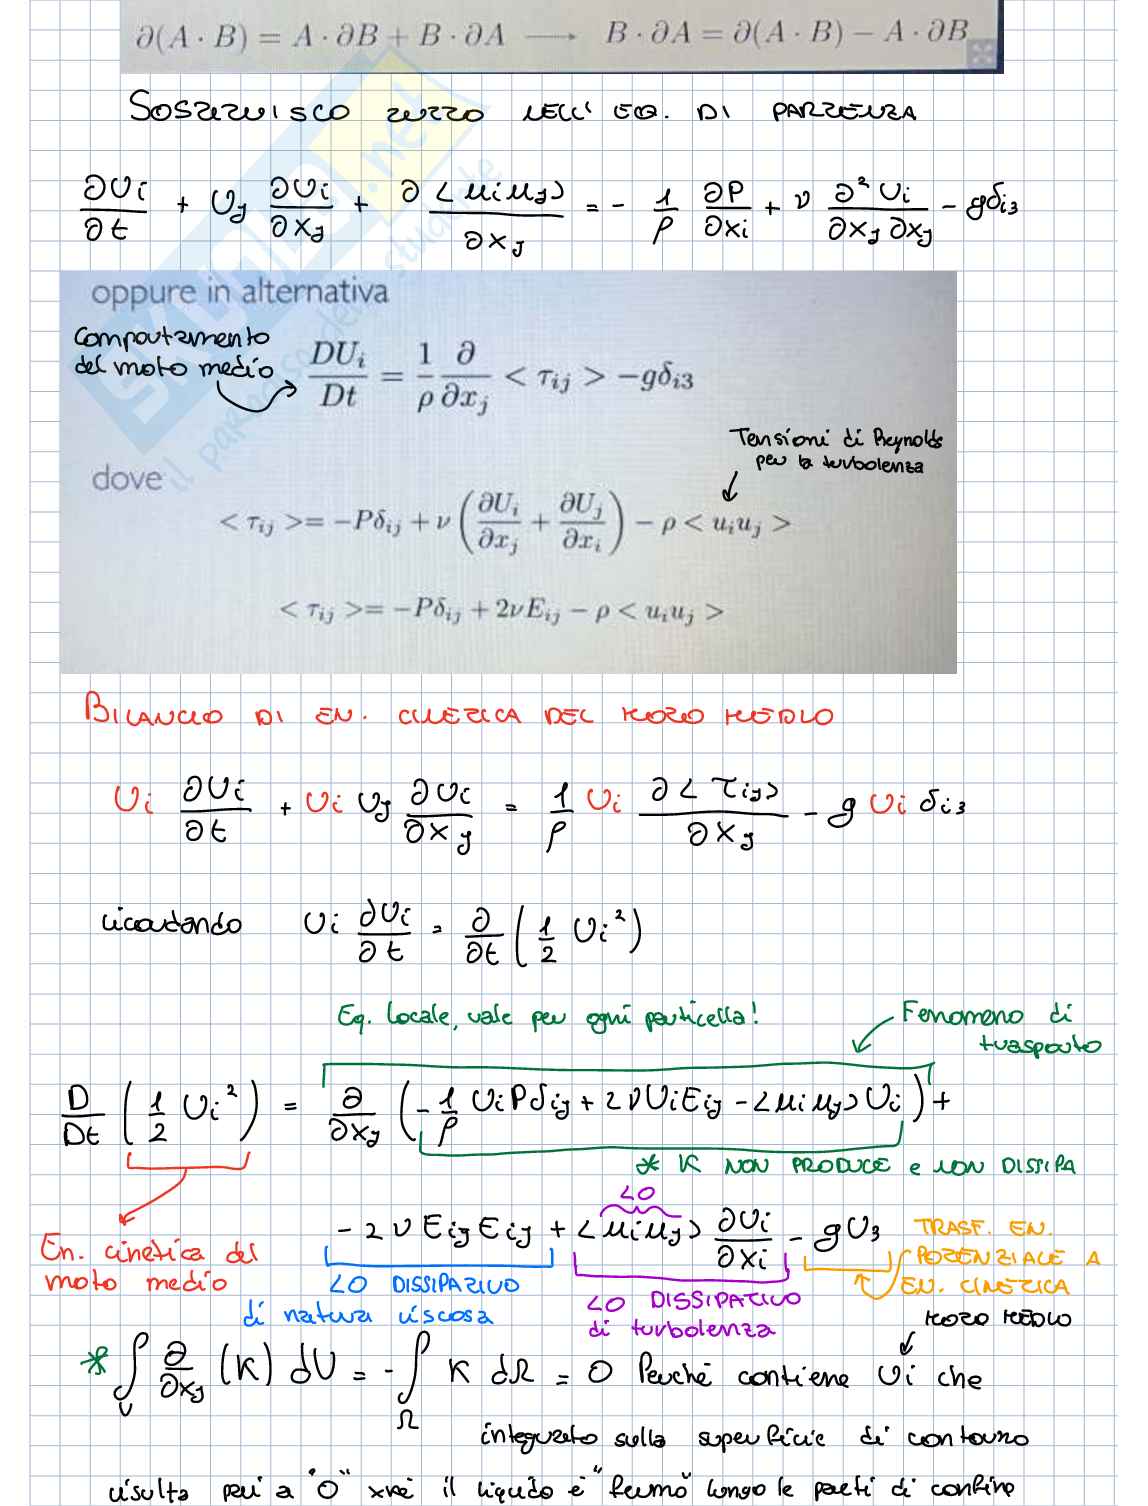 ∂(A · B) = A · ∂B + B · ∂A ⟶ B · ∂A = ∂(A · B) − A · ∂B
SOSTITUISCO TUTTO NELL' EQ. DI PARTENZA
∂Ui/∂t + Uj ∂Ui/∂xj + ∂<uiuj>/∂xj = - 1/ρ ∂P/∂xi + ν ∂²Ui/∂xj∂xj - gδi3
oppure in alternativa
Comportamento
del moto medio
DUi/Dt = 1/ρ ∂/∂xj < τij > −gδi3
Tensioni di Reynolds
per la turbolenza
dove
< τij >= −Pδij + ν (∂Ui/∂xj + ∂Uj/∂xi) − ρ < uiuj >
< τij >= −Pδij + 2νEij − ρ < uiuj >
BILANCIO DI EN. CINETICA DEL MOTO MEDIO
Ui ∂Ui/∂t + Ui Uj ∂Ui/∂xj = 1/ρ Ui ∂<τij>/∂xj - g Ui δi3
ricordando Ui ∂Ui/∂t = ∂/∂t (1/2 Ui²)
Eq. locale, vale per ogni particella!
Fenomeno di
trasporto
D/Dt (1/2 Ui²) = ∂/∂xj (-1/ρ UiPδij + 2νUiEij - <uiuj>Ui) +
* K NON PRODUCE e NON DISSIPA
<0
- 2νEijEij + <uiuj> ∂Ui/∂xi - gU3
TRASF. EN.
POTENZIALE A
EN. CINETICA
MOTO MEDIO
En. cinetica del
moto medio
<0 DISSIPATIVO
di natura viscosa
<0 DISSIPATIVO
di turbolenza
* ∫V ∂/∂xj (K) dV = -∫Ω K dΩ = 0 Perché contiene Ui che
integrato sulla superficie di contorno
risulta pari a "0" xké il liquido è "fermo" lungo le pareti di confine